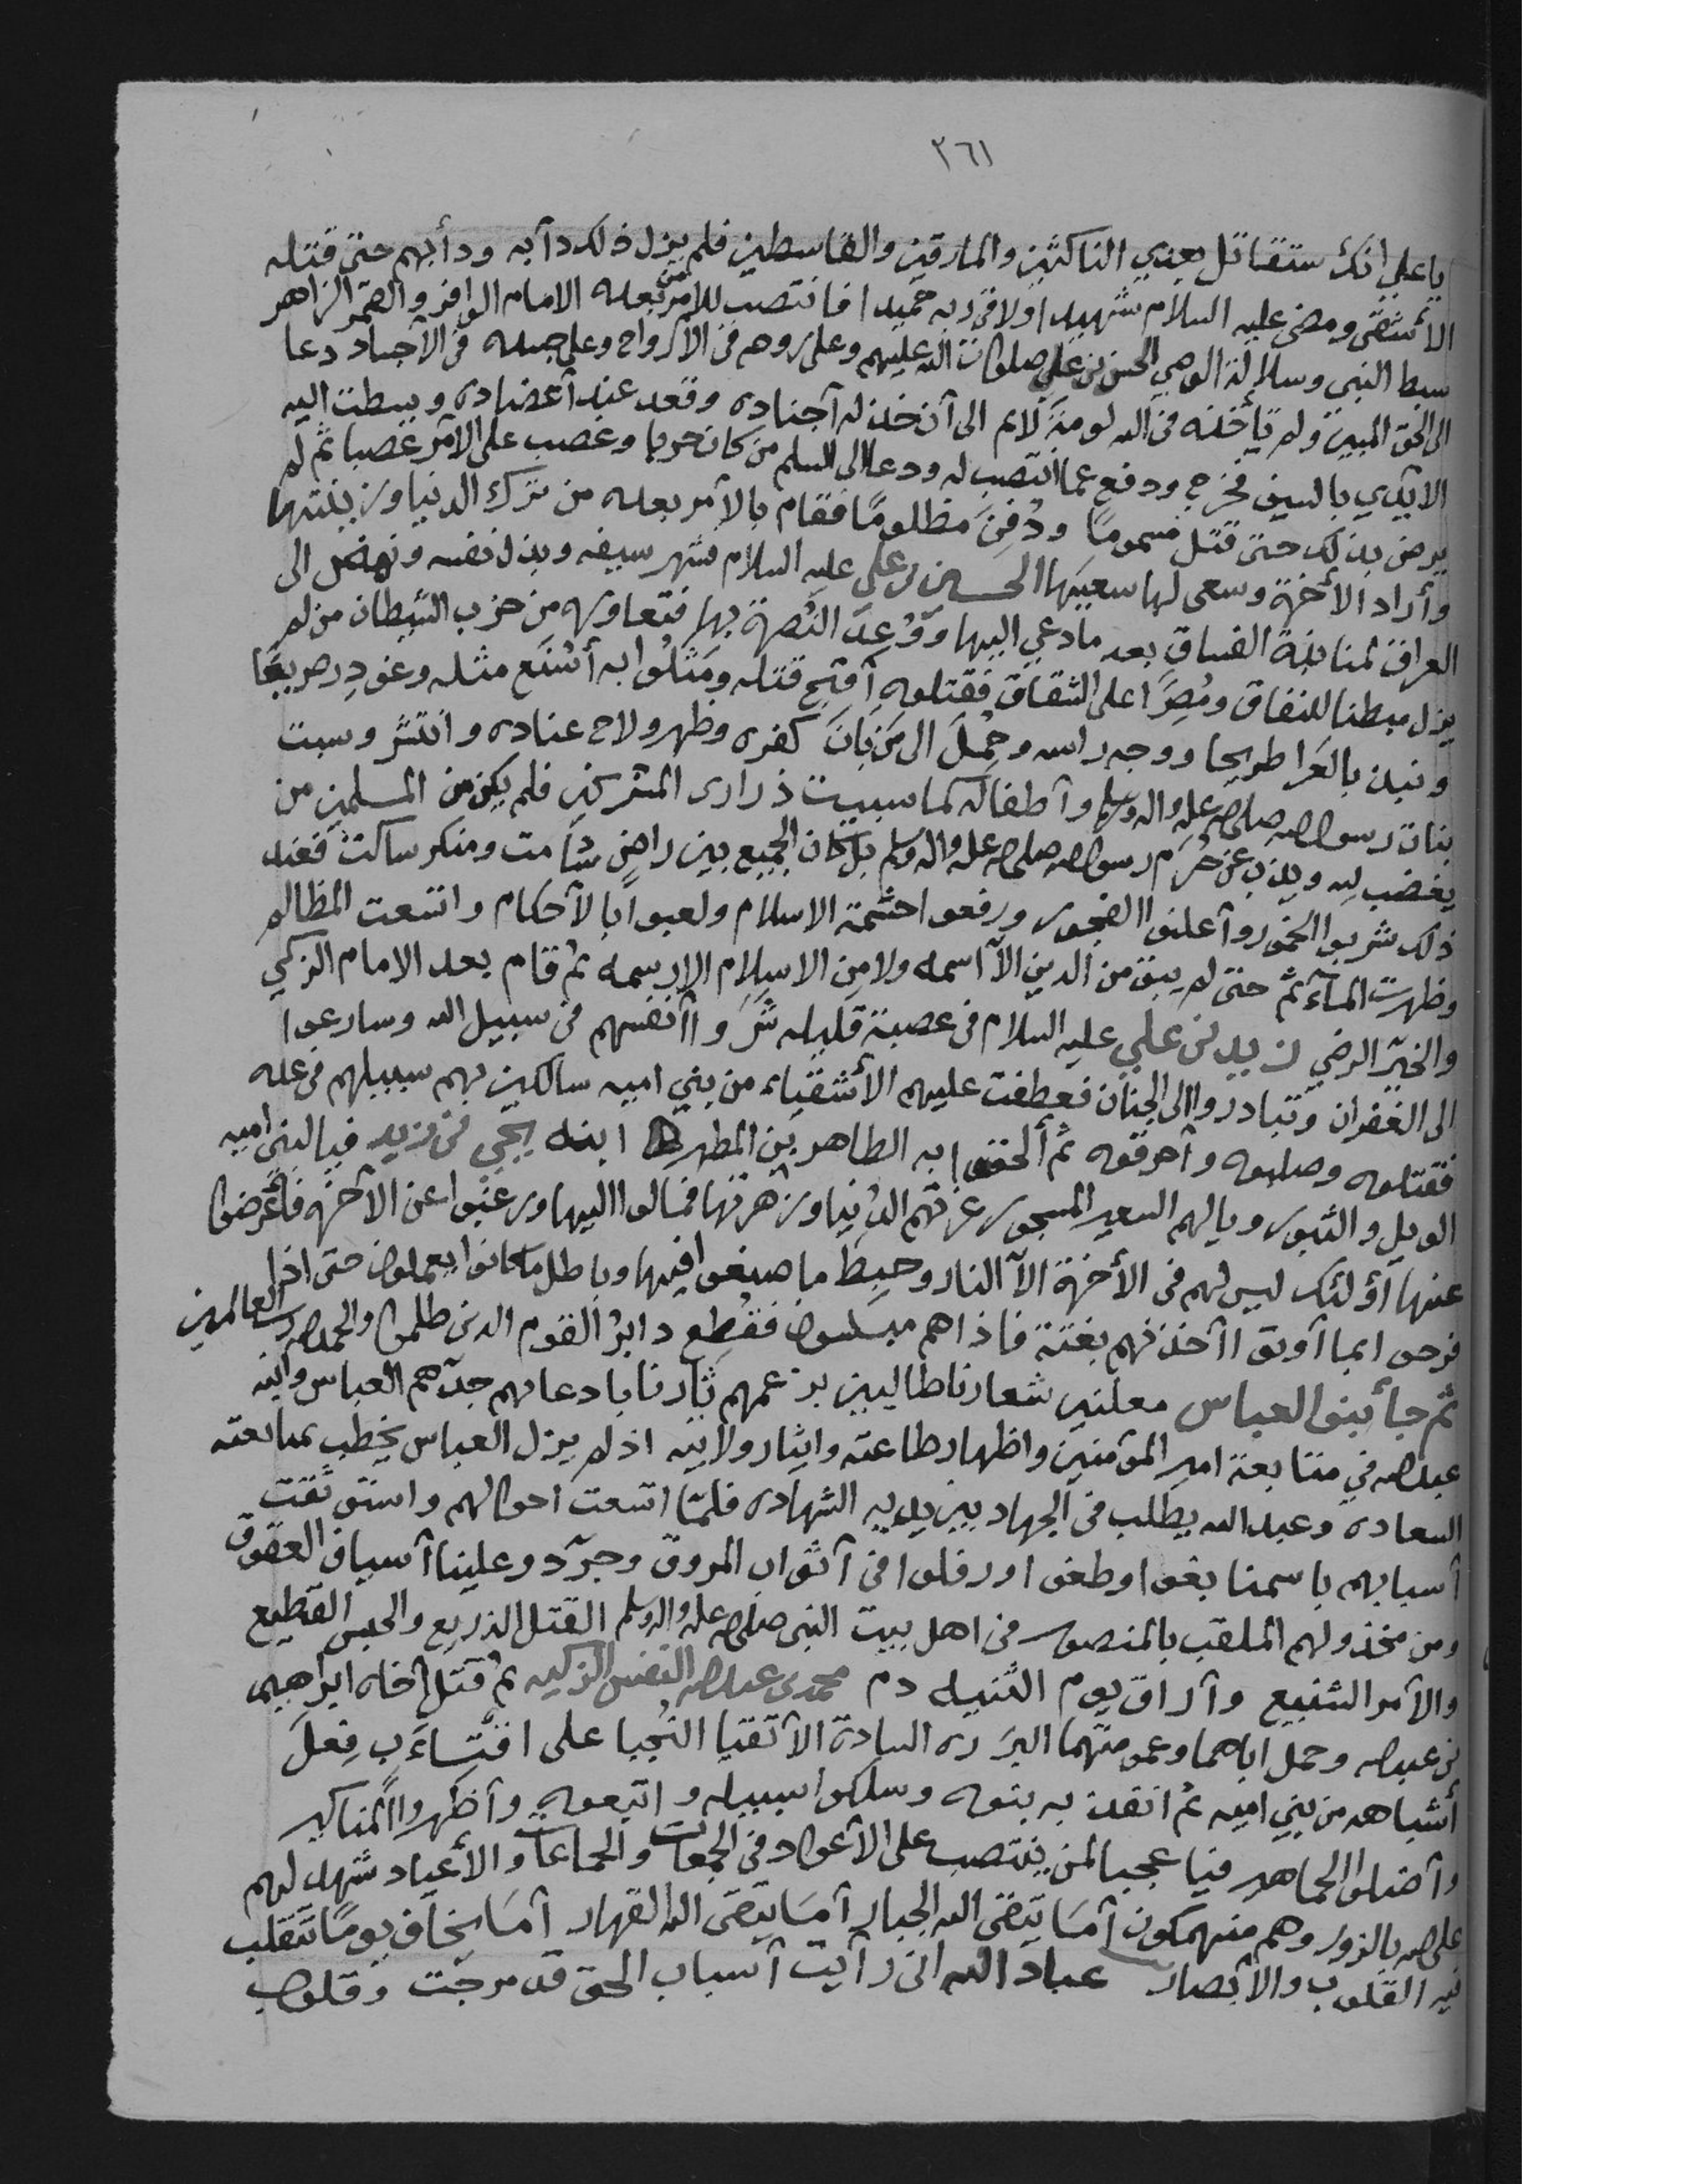 ٣٦١
يا علي انك ستقاتل بعدي الناكثين والمارقين والقاسطين فلم يزل ذلك دآبه ودأبهم حتى قتله
الأشقى ومضى عليه السلام شهيدا ولاقى ربه حميدا فانتصب للأمر من بعده الامام الوافر والقمر الزاهر
سبط النبي وسلالة الوصي الحسن بن علي صلوات الله عليهم وعلى روحهم في الأرواح وعلى جسده في الأجساد دعا
الى الحق المبين ولم تأخذه في الله لومة لائم الى آن خذله آجناده وقعد عنه آعضاده وبسطت اليه
الايدي بالسيف فخرج ودفع عما انتصب له ودعا الى السلم من كان حربا وغصب على الأمر غصبا ثم لم
يرض بذلك حتى قتل مسموما ودُفِنَ مظلومًا فقام بالأمر بعده من ترك الدنيا وزينتها
وأراد الأخرة وسعى لها سعيها الحسين بن علي عليه السلام شهر سيفه وبذل نفسه ونهض الى
العراق لمنابذة الفساق بعد ما دعي اليها ووُعِدَ النُصرة بها فتعاوره من حزب الشيطان من لم
يزل مبطنا للنفاق ومُصِرًا على الشقاق فقتلوه آقبح قتله ومَثلُوا به أشنَع مثله وغودِر صريعًا
ونبذ بالعَرا طريحا ووجه راسه وحُمِلَ الى مَن بَانَ كفره وظهر ولاح عناده وانتشر وسبت
بنات رسول الله صلى الله عليه واله وسلم وآطفاله كما سبيت ذراري المشركين فلم يكن من المسلمين من
يغضب لله ويذب عن حُرَم رسول الله صلى الله عليه واله وسلم بل كان الجميع بين راضٍ شامت ومنكر ساكت فعند
ذلك شربوا الخمور وآعلنوا الفجور ورفعوا حشمة الاسلام ولعبوا بالآحكام واتسعت المظالم
وظهرت المآثم حتى لم يبق من الدين الآ اسمه ولا من الاسلام الا رسمه ثم قام بعد الامام الزكي
والخيّر الرضي زيد بن علي عليه السلام في عصبة قليله شَرَوا أنفسهم في سبيل الله وسارعوا
الى الغفران وتبادروا الى الجنان فعطفت عليهم الأشقياء من بني اميه سالكين بهم سبيلهم في عله
فقتلوه وصلبوه وآحرقوه ثم ألحقوا به الطاهر بن المطهر ابنه يحيى بن زيد فيا لبني اميه
الويل والثبور ويالهم السعير المسجور غرتهم الدنيا وزهرتها فمالوا اليها ورغبوا عن الآخره فآعرضوا
عنها أولئك ليس لهم في الأخرة الآ النار وحبط ما صنعوا فيها وباطل ما كانوا يعملون حتى اذا
فرحوا بما آوتوا آخذنهم بغتة فاذاهم مبلسون فقُطِع دابرُ القوم الدين ظلموا والحمد لله رب العالمين
ثم جأ بنو العباس معلنين شعارنا طالبين بزعمهم ثارنا باد عاهم جدّهم العباس وابنه
عبدالله في متابعة امير المؤمنين واظهار طاعته وايثار ولايته اذ لم يزل العباس يخطب بمبايعته
السعادة وعبدالله يطلب في الجهاد بين يديه الشهاده فلمّا اتسعت احوالهم واستوثقت
آسبابهم باسمنا بغوا وطغوا ورفلوا في آثواب المروق وجرّدوعلينا آسياف العقوق
ومن مخذولهم الملقب بالمنصور في اهل بيت النبي صلى الله عليه واله وسلم القتل الذريع والحبس الفظيع
والآمر الشنيع وآراق يوم الثنيه دم محمد بن عبدالله النفس الزكيه ثم قتل آخاه ابراهيم
بن عبدالله وحمل اباهما وعمومتهما البرَره الساده الآتقيا النُجبا على اقتاب فِعلَ
أشباهه من بني اميه ثم اقتدت به بنوه وسلكوا سبيله واتبعوه وآظهروا المناكير
وآضلوا الجماهير فيا عجبا لمن ينتصب على الآعواد في الجمعات والجماعات والأعياد شهد لهم
على الله بالزور وهم منهمكون آمَا يتقى الله الجبار آمَا يتقى الله القهار آمَا يخاف يومًا تتقلب
فيه القلوب والأبصار عباد الله انى رآيت آسباب الحق قد مرجت وقلوب